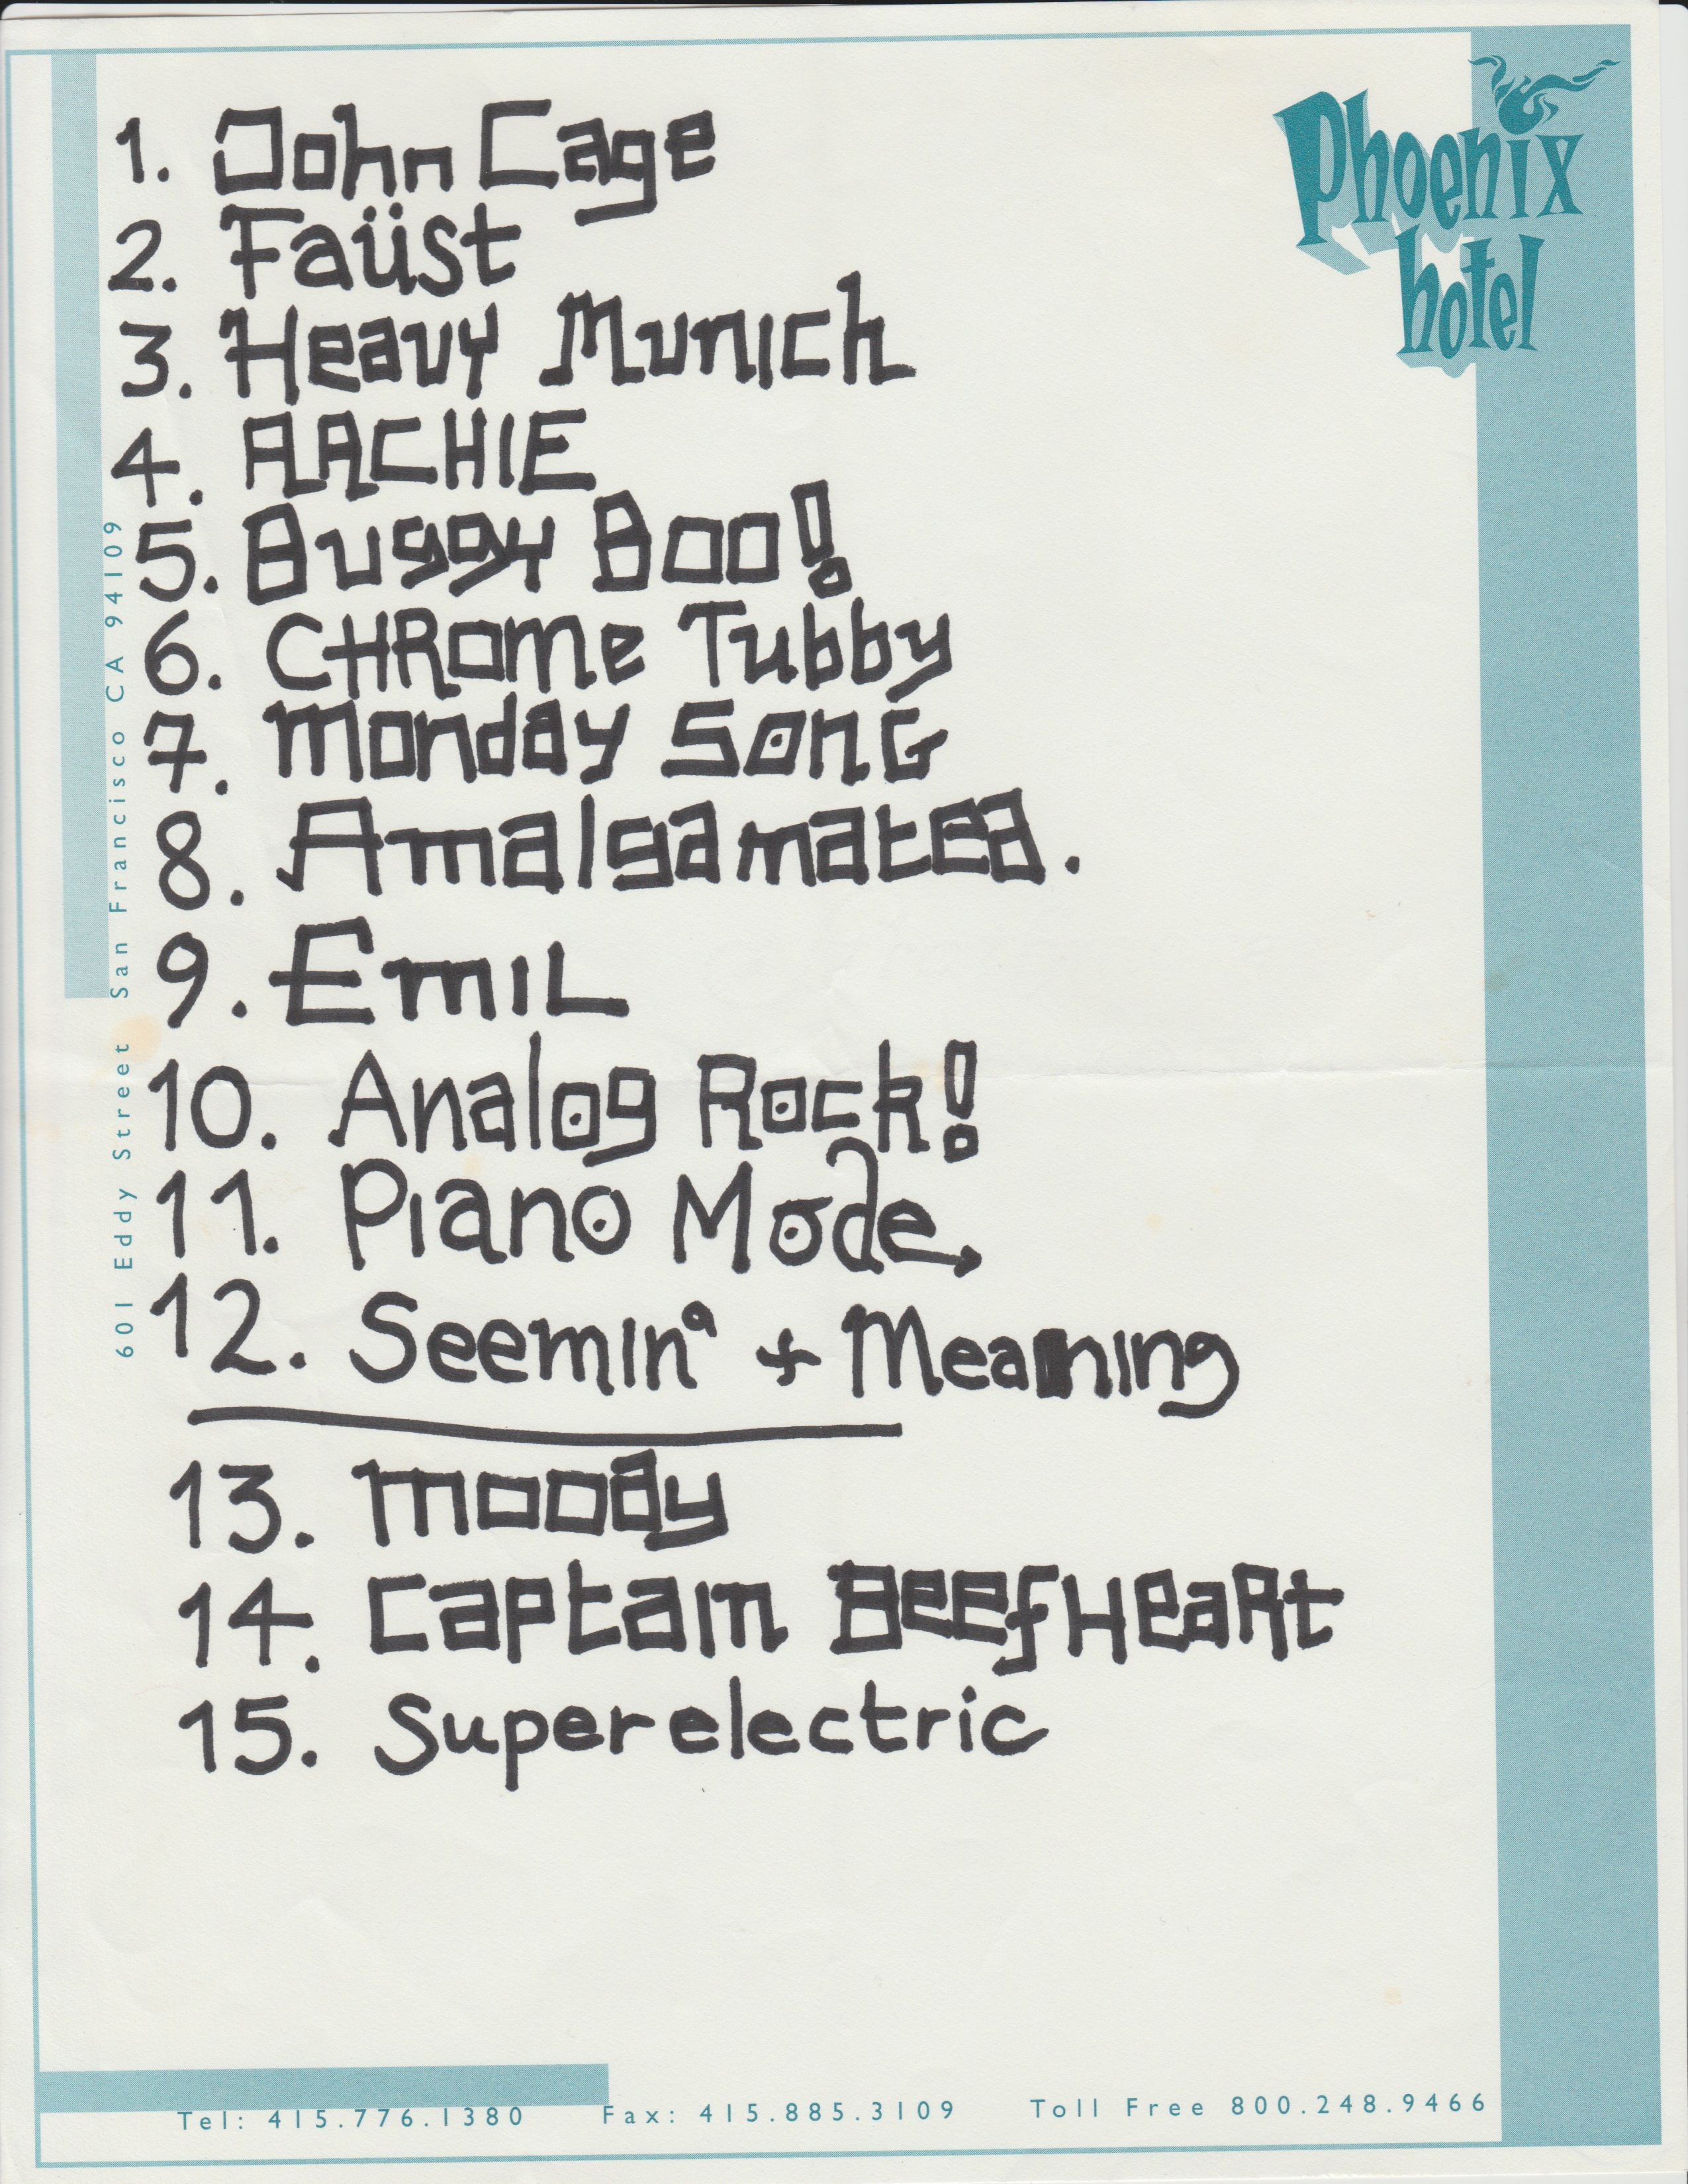 Phoenix
hotel
1. John Cage
2. Faüst
3. Heavy Munich
4. AACHIE
5. Buggy Boo!
6. CHRome Tubby
7. Monday SonG
8. Amalgamated.
9. EmiL
10. Analog Rock!
11. Piano Mode.
12. Seemin° + Meaning
13. Moody
14. Captain BeefHeaRt
15. Superelectric
601 Eddy Street San Francisco CA 94109
Tel: 415.776.1380 Fax: 415.885.3109 Toll Free 800.248.9466